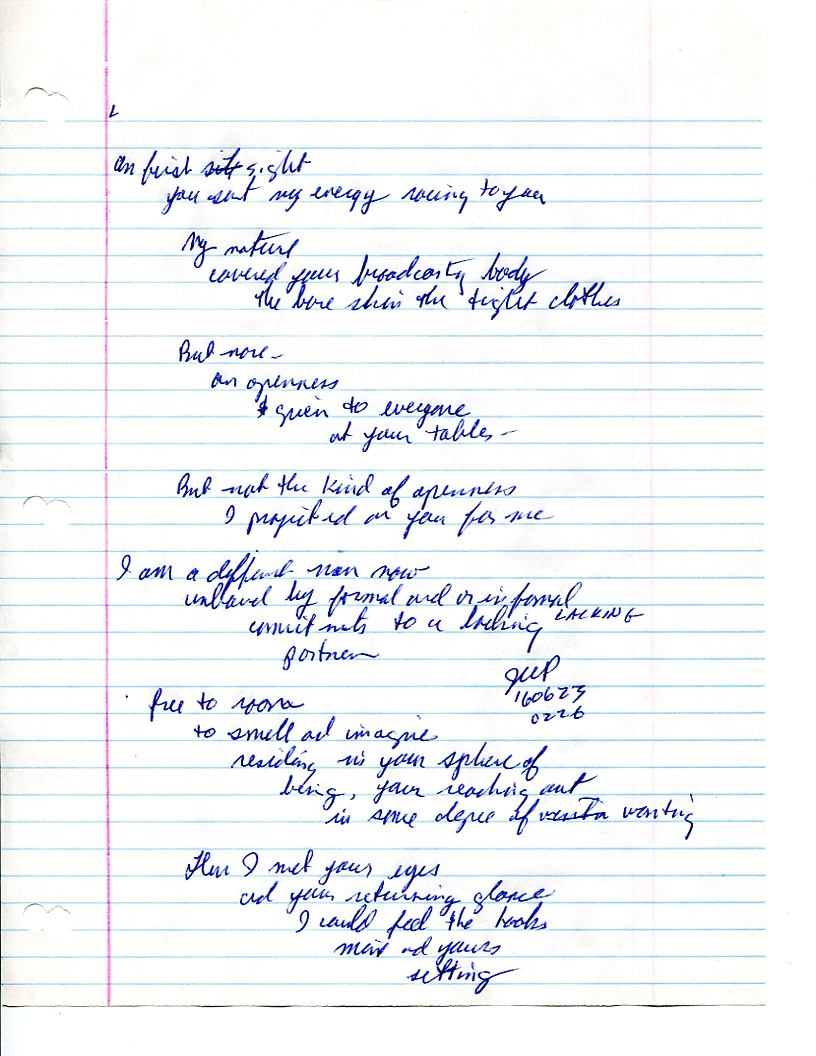 on first sit sight
you sent my energy racing to you
My nature
covered your broadcasty body
the bare skin the tight clothes
But more -
an openness
given to everyone
at your tables -
But not the kind of openness
I projected on you for me
I am a different man now
by formal and or informal
commitments to a lacking LACKING
partner
JWP
160623
0226
free to roam
to smell and imagine
residing in your sphere of
being, your reaching out
in some degree of wanting
Then I met your eyes
and your returning glance
I could feel the hooks
mine and yours
setting